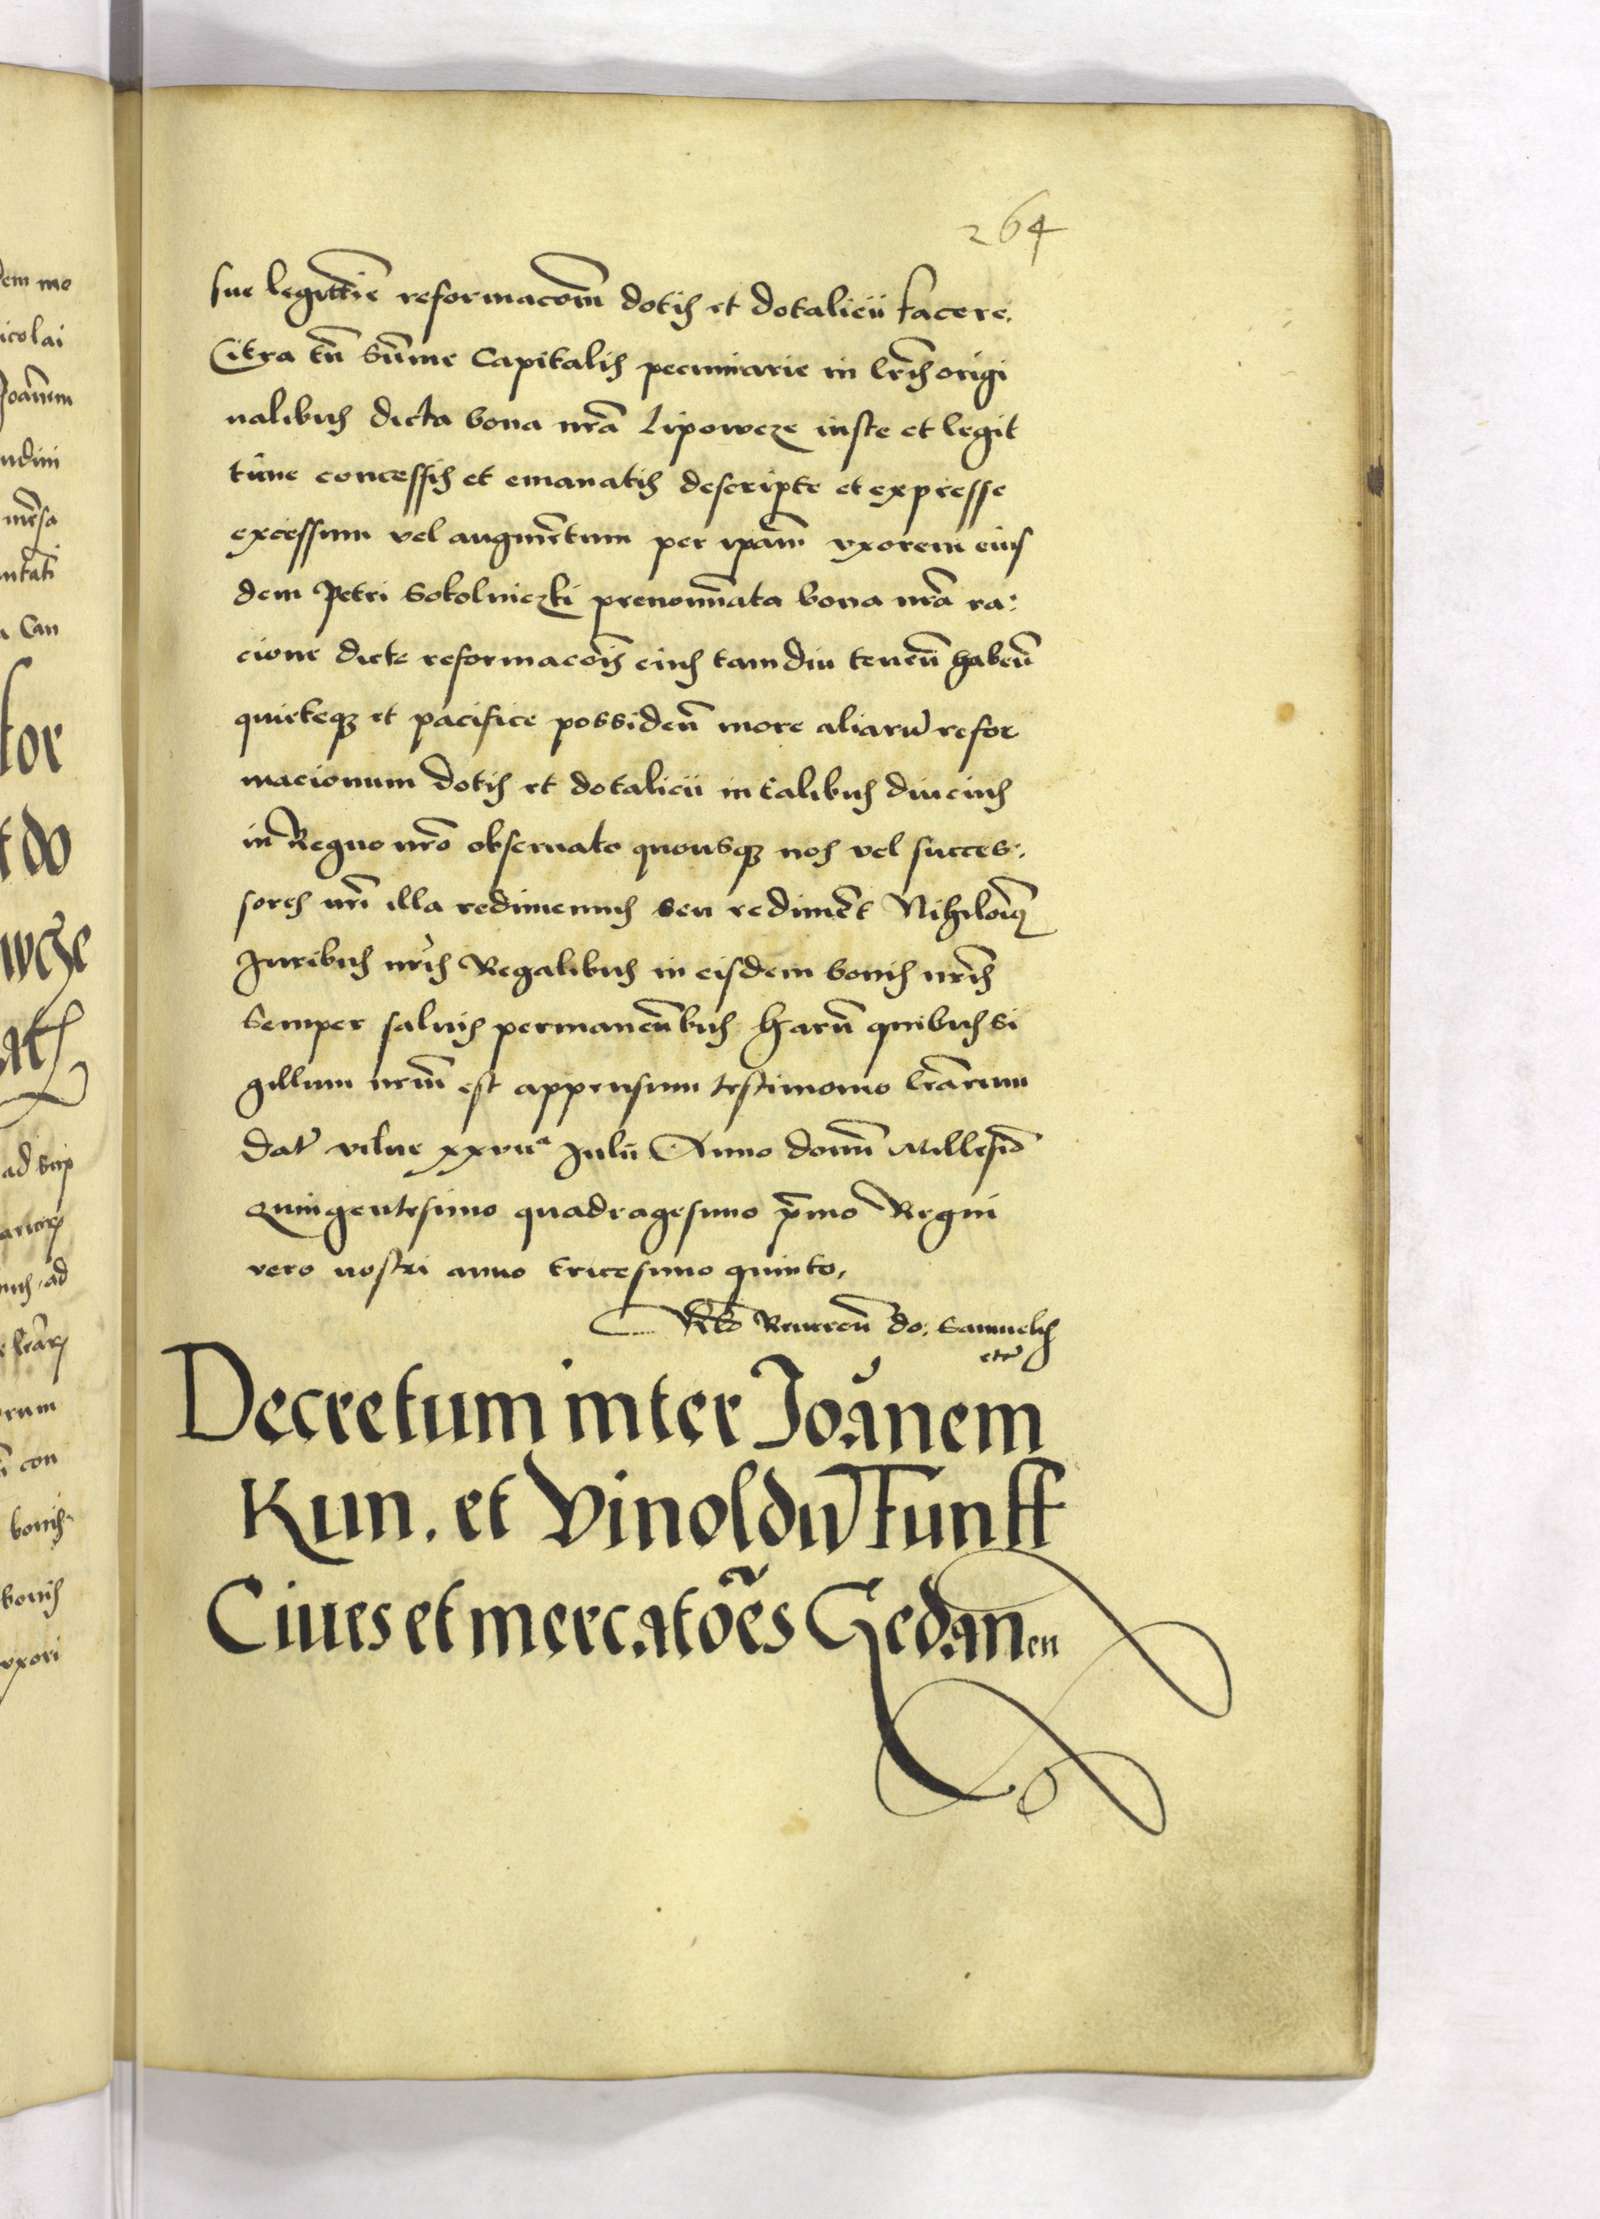 264
sue legittīe reformacōm dotis et dotalicii facere.
Citra tn̄ sūme Capitalis pecuniarie in lr̄is origi
nalibus dicta bona nrā Lipowcze iuste et legit
time concessis et emanatis descripte et expresse
excessum vel augmētum per ipām vxorem eius
dem Petri Sokolniczki prenoīnata bona nrā ra:
cione dicte reformacōis eius tamdiu tenēn̄ habēn̄
quieteqȝ et pacifice possidēn̄ more aliarū refor
macionum dotis et dotalicii in talibus diucius
in Regno nrō obseruato quousqȝ nos vel succes:
sores nrī illa redimemus seu redimēt Nihilomiꝰ
Juribus nrīs Regalibus in eisdem bonis nrīs
semper saluis permanēn̄bus Harū quibus si
gillum nrūm est appensum testimonio lrārum
Dat̄ vilne xxviia Julii Anno domī Millesīo
Quingentesimo quadragesimo p̄mo Regni
vero nostri anno tricesimo quinto,
Reueren̄ do: Samuelis
etc̄
Decretum inter Joānem
Kun. et Vinoldū Funff
Ciues et mercatōes Gedanen
dem mo
icolai
Joānem
a Can
tor
t do
ad
rum
con
bonis
bonis
vxori